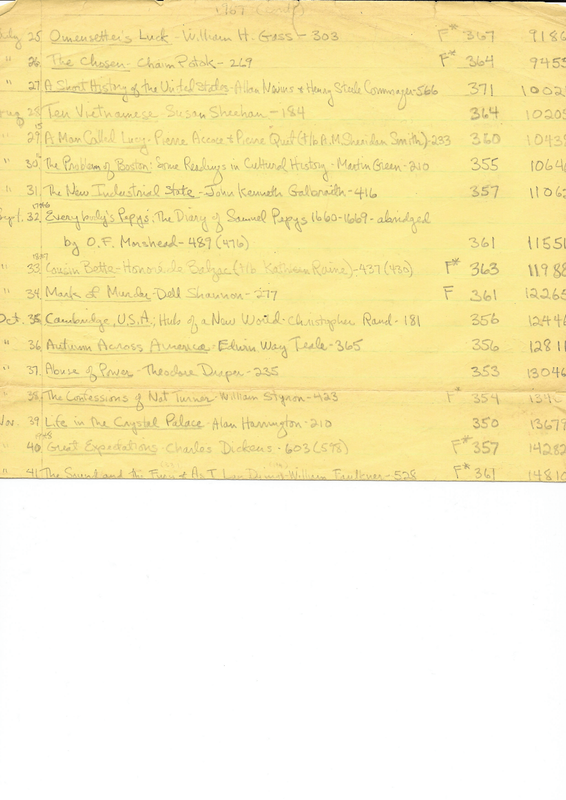 1967 (cont.)
July 25 Omensetter's Luck - William H. Gass - 303 F* 367 9186
" 26 The Chosen - Chaim Potok - 269 F* 364 9455
" 27 A Short History of the United States - Allan Nevins & Henry Steele Commager - 566 371 10021
Aug 28 Ten Vietnamese Susan Sheehan - 184 364 10205
" 29 A Man Called Lucy - Pierre Accoce & Pierre Quet (t/b A.M. Sheridan Smith) - 233 360 1043
" 30 The Problem of Boston: Some Readings in Cultural History - Martin Green - 210 355 1064
" 31. The New Industrial State - John Kenneth Galbraith - 416 357 1106
Sept. 32. Everybody's Pepys: The Diary of Samuel Pepys 1660-1669 - abridged
by O.F. Morshead - 489 (476) 361 11551
1847
" 33 Cousin Bette - Honoré de Balzac (t/b Kathleen Raine) - 437 (430) F* 363 11988
" 34. Mark of Murder - Dell Shannon - 277 F 361 12265
Oct. 35 Cambridge, U.S.A.: Hub of a New World - Christopher Rand - 181 356 12446
" 36 Autumn Across America - Edwin Way Teale - 365 356 12811
" 37. Abuse of Power - Theodore Draper - 235 353 13046
" 38. The Confessions of Nat Turner - William Styron - 423 F* 354 134
Nov. 39 Life in the Crystal Palace - Alan Harrington - 210 350 13679
" 40. Great Expectations - Charles Dickens - 603 (598) F* 357 14282
" 41 The Sound and the Fury & As I Lay Dying - William Faulkner - 528 F* 361 14810